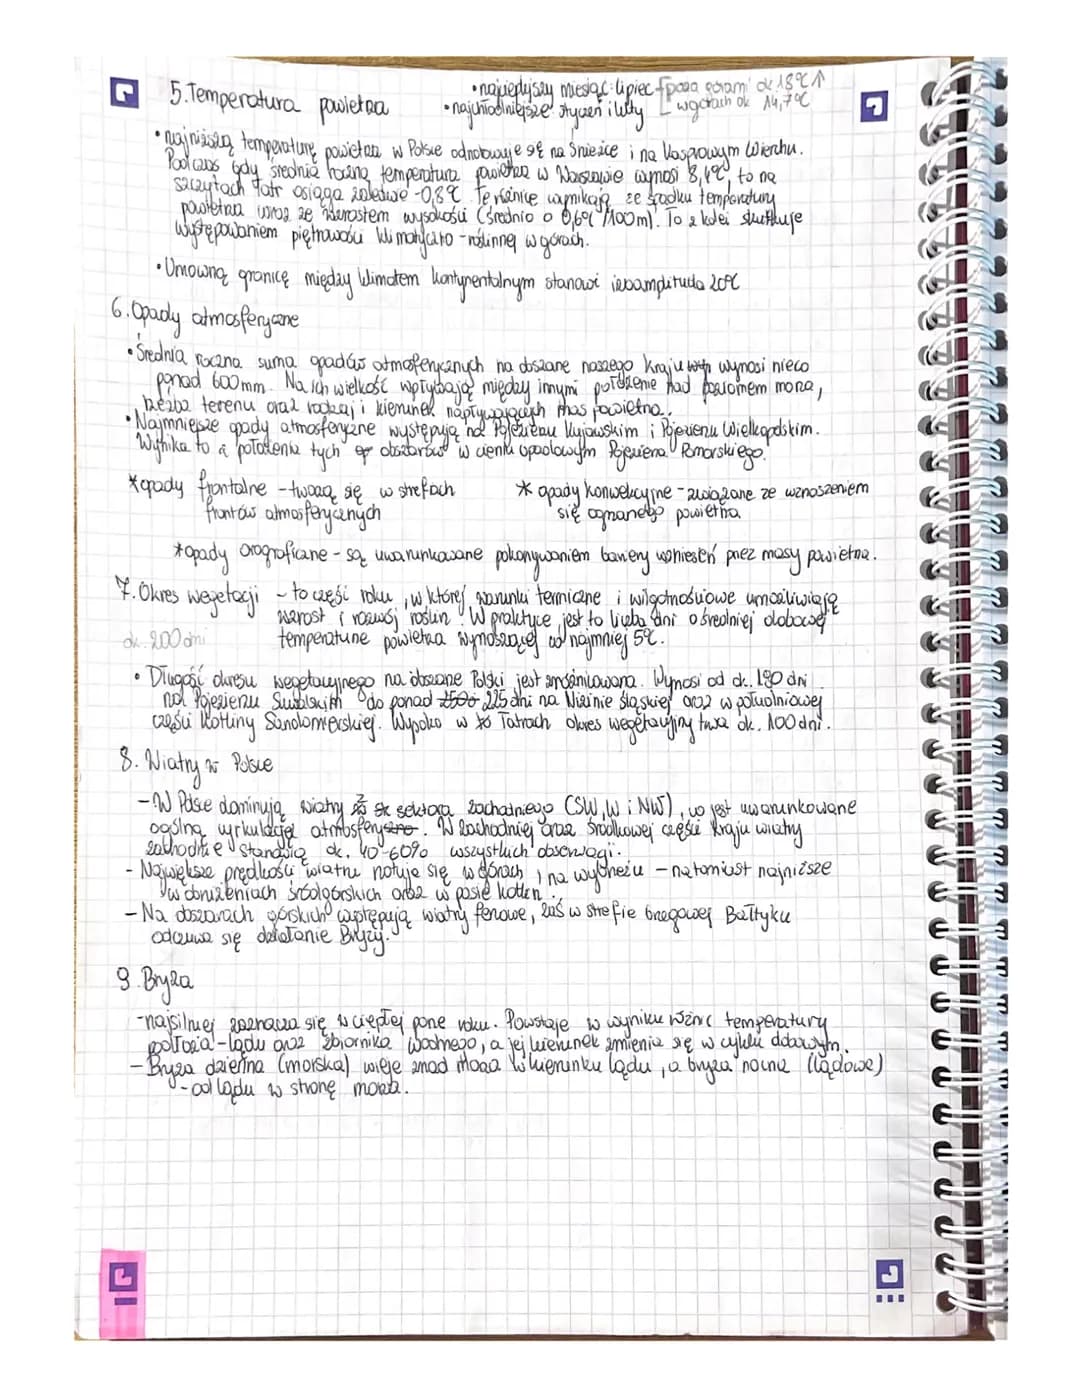 5. Temperatura powietrza
• najcieplejszy miesiąc: lipiec
poza górami ok 18°C↑
w górach ok 14,7°C
• najchłodniejsze: styczeń i luty
• najniższą temperaturę powietrza w Polsce odnotowuje się na Śnieżce i na Kasprowym Wierchu.
Podczas gdy średnia roczna temperatura powietrza w Warszawie wynosi 8,4°C, to na
szczytach Tatr osiąga zaledwie -0,8°C. Te różnice wynikają ze spadku temperatury
powietrza wraz ze wzrostem wysokości (średnio o 0,6°C/100m). To z kolei skutkuje
występowaniem piętrowości klimatyczno-roślinnej w górach.
• Umowną granicę między klimatem kontynentalnym stanowi izoamplituda 20°C
6. Opady atmosferyczne
• Średnia roczna suma opadów atmosferycznych na obszarze naszego kraju wynosi nieco
ponad 600mm. Na ich wielkość wpływają między innymi położenie nad poziomem morza,
rzeźba terenu oraz rodzaj i kierunek napływających mas powietrza.
• Najmniejsze opady atmosferyczne występują na Pojezierzu Kujawskim i Pojezierzu Wielkopolskim.
Wynika to z położenia tych obszarów w cieniu opadowym Pojezierza Pomorskiego.
*opady frontalne - tworzą się w strefach
frontów atmosferycznych
* opady konwekcyjne - związane ze wznoszeniem
się ogrzanego powietrza
*opady orograficzne - są uwarunkowane pokonywaniem bariery wzniesień przez masy powietrza.
7. Okres wegetacji - to część roku, w której warunki termiczne i wilgotnościowe umożliwiają
wzrost i rozwój roślin. W praktyce jest to liczba dni o średniej dobowej
ok. 200 dni temperaturze powietrza wynoszącej co najmniej 5°C.
• Długość okresu wegetacyjnego na obszarze Polski jest zróżnicowana. Wynosi od ok. 190 dni
na Pojezierzu Suwalskim do ponad 225 dni na Nizinie Śląskiej oraz w południowej
części Kotliny Sandomierskiej. Wysoko w Tatrach okres wegetacyjny trwa ok. 100 dni.
8. Wiatry w Polsce
- W Polsce dominują wiatry z sektora zachodniego (SW, W i NW), co jest uwarunkowane
ogólną cyrkulacją atmosfery. W zachodniej oraz środkowej części kraju wiatry
zachodnie stanowią ok. 40-60% wszystkich obserwacji.
- Największe prędkości wiatru notuje się w górach i na wybrzeżu - natomiast najniższe
w obniżeniach śródgórskich oraz w pasie kotlin.
- Na obszarach górskich występują wiatry fenowe, zaś w strefie brzegowej Bałtyku
odczuwa się działanie Bryzy.
9. Bryza
- najsilniej zaznacza się w ciepłej porze roku. Powstaje w wyniku różnic temperatury
lądu oraz zbiornika wodnego, a jej kierunek zmienia się w cyklu dobowym.
- Bryza dzienna (morska) wieje znad morza w kierunku lądu, a bryza nocna (lądowa)
- od lądu w stronę morza.